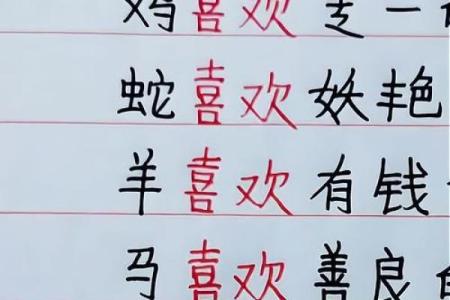 鸡喜欢一
蛇喜欢妖艳
羊喜欢有钱
马喜欢善良的